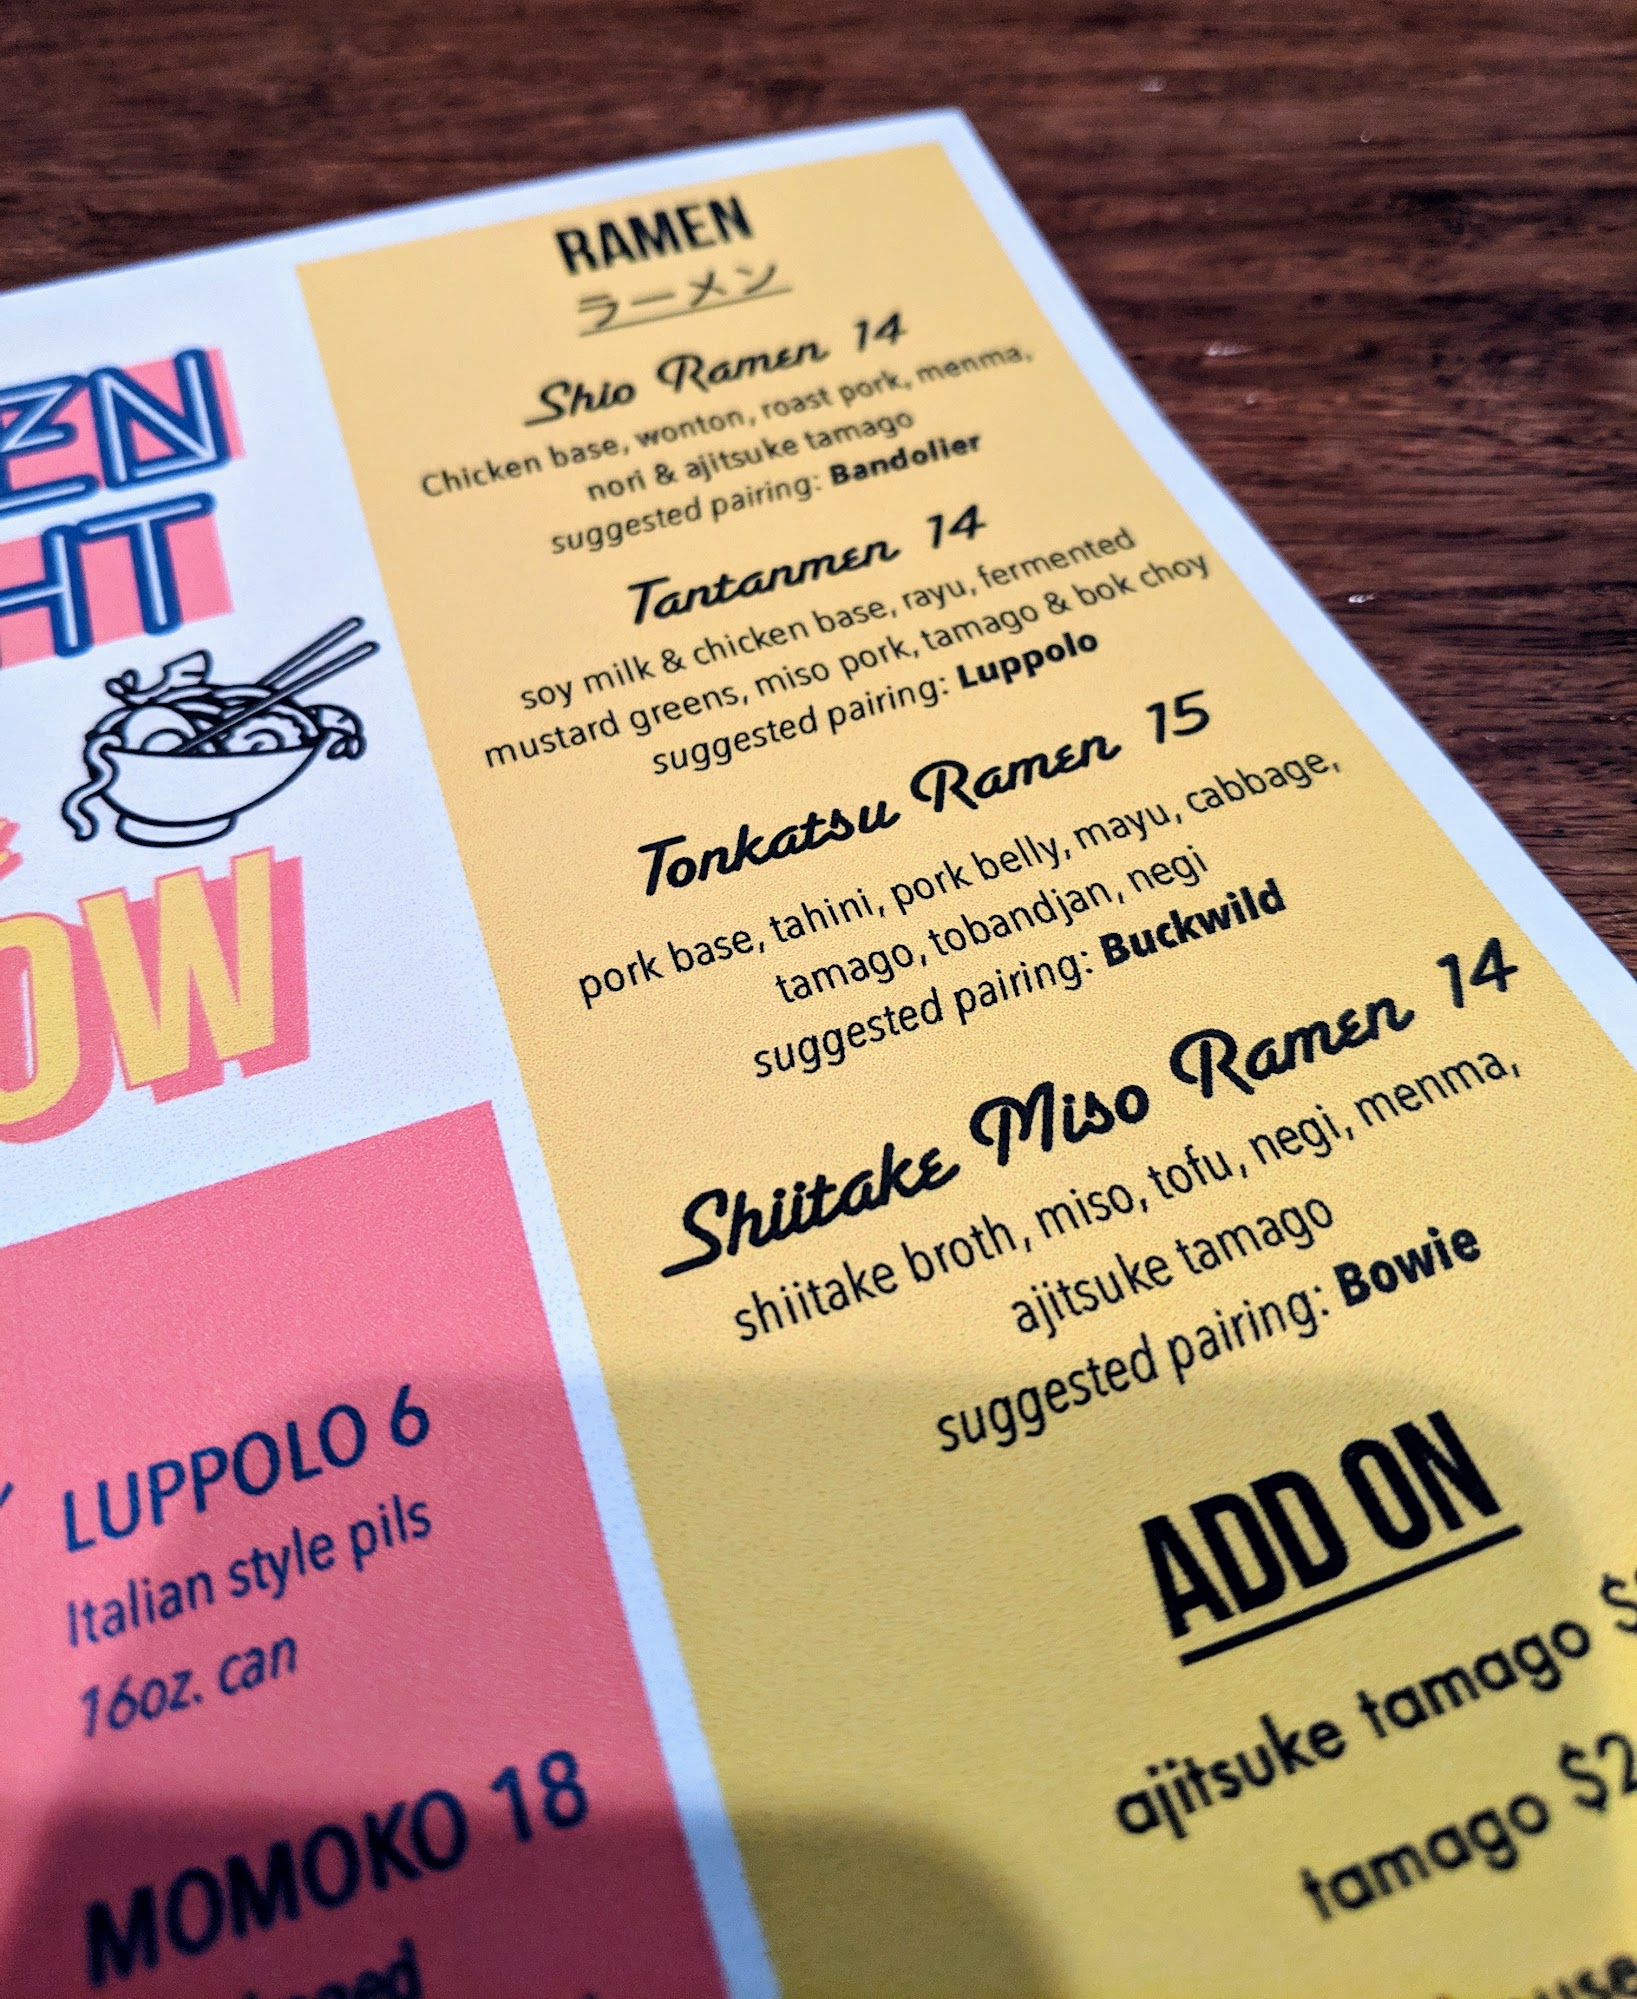 RAMEN
ラーメン
Shio Ramen 14
Chicken base, wonton, roast pork, menma,
nori & ajitsuke tamago
suggested pairing: Bandolier
Tantanmen 14
soy milk & chicken base, rayu, fermented
mustard greens, miso pork, tamago & bok choy
suggested pairing: Luppolo
Tonkatsu Ramen 15
pork base, tahini, pork belly, mayu, cabbage,
tamago, tobandjan, negi
suggested pairing: Buckwild
Shiitake Miso Ramen 14
shiitake broth, miso, tofu, negi, menma,
ajitsuke tamago
suggested pairing: Bowie
ADD ON
ajitsuke tamago
tamago $2
LUPPOLO 6
Italian style pils
16oz. can
MOMOKO 18